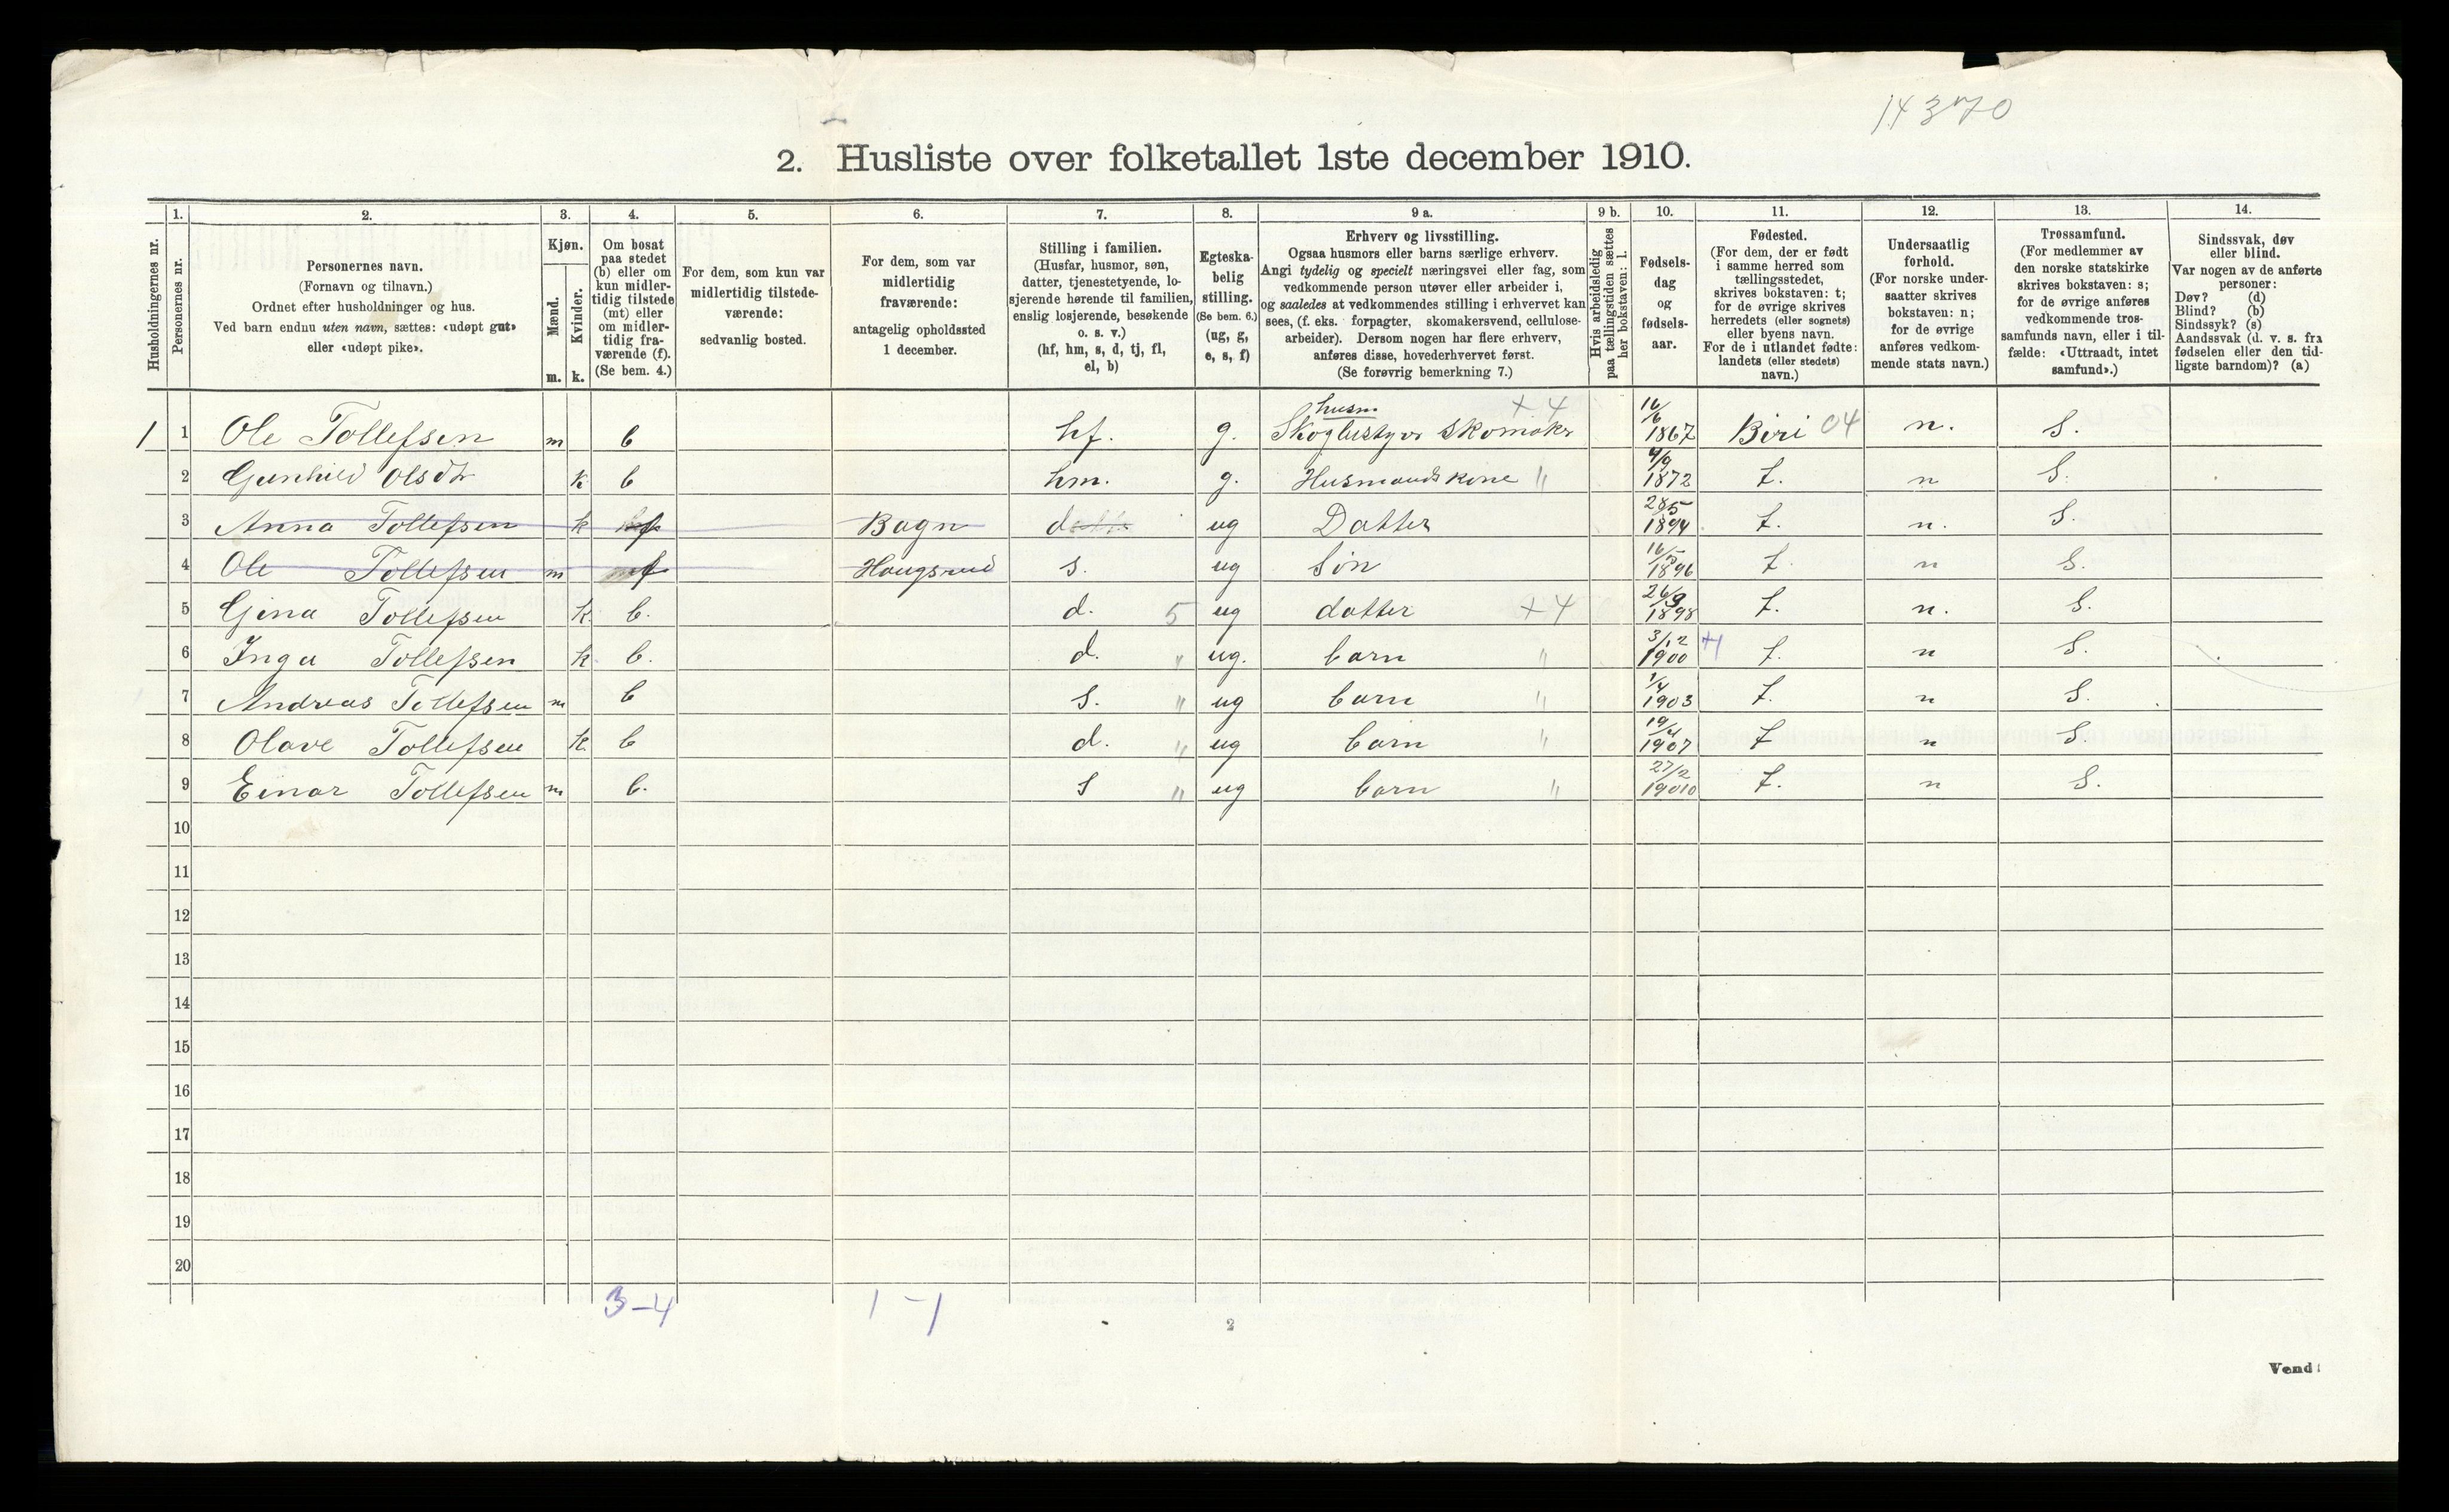 14370
2. Husliste over folketallet 1ste december 1910.
Husholdningernes nr.
1.
Personernes nr.
2.
Personernes navn.
(Fornavn og tilnavn.)
Ordnet efter husholdninger og hus.
Ved barn endnu uten navn, sættes: «udøpt gut»
eller «udøpt pike».
3.
Kjøn.
Mænd.
m.
Kvinder.
k.
4.
Om bosat
paa stedet
(b) eller om
kun midler-
tidig tilstede
(mt) eller
om midler-
tidig fra-
værende (f).
(Se bem. 4.)
5.
For dem, som kun var
midlertidig tilstede-
værende:
sedvanlig bosted.
6.
For dem, som var
midlertidig
fraværende:
antagelig opholdssted
1 december.
7.
Stilling i familien.
(Husfar, husmor, søn,
datter, tjenestetyende, lo-
sjerende hørende til familien,
enslig losjerende, besøkende
o. s. v.)
(hf, hm, s, d, tj, fl,
el, b)
8.
Egteska-
belig
stilling.
(Se bem. 6.)
(ug, g,
e, s, f)
9 a.
Erhverv og livsstilling.
Ogsaa husmors eller barns særlige erhverv.
Angi tydelig og specielt næringsvei eller fag, som
vedkommende person utøver eller arbeider i,
og saaledes at vedkommendes stilling i erhvervet kan
sees, (f. eks. forpagter, skomakersvend, cellulose-
arbeider). Dersom nogen har flere erhverv,
anføres disse, hovederhvervet først.
(Se forøvrig bemerkning 7.)
9 b.
Hvis arbeidsledig
paa tællingstiden sættes
her bokstaven: l.
10.
Fødsels-
dag
og
fødsels-
aar.
11.
Fødested.
(For dem, der er født
i samme herred som
tællingsstedet,
skrives bokstaven: t;
for de øvrige skrives
herredets (eller sognets)
eller byens navn.
For de i utlandet fødte:
landets (eller stedets)
navn.)
12.
Undersaatlig
forhold.
(For norske under-
saatter skrives
bokstaven: n;
for de øvrige
anføres vedkom-
mende stats navn.)
13.
Trossamfund.
(For medlemmer av
den norske statskirke
skrives bokstaven: s;
for de øvrige anføres
vedkommende tros-
samfunds navn, eller i til-
fælde: «Uttraadt, intet
samfund».)
14.
Sindssvak, døv
eller blind.
Var nogen av de anførte
personer:
Døv? (d)
Blind? (b)
Sindssyk? (s)
Aandssvak (d. v. s. fra
fødselen eller den tid-
ligste barndom)? (a)
husm + 4
1 1 Ole Tollefsen m b hf. g. Skoglustyvr Skomaker 16/6 1867 Biri 04 n. S.
2 Gunhild Olsdtr k b hm. g. Husmandskone " 4/9 1872 t. n S.
3 Anna Tollefsen k f Bagn d ug Datter 28/5 1894 t. n. S.
4 Ole Tollefsen m f Haugsrud s. ug Søn 16/5 1896 t. n S.
5 Gina Tollefsen k. b. d. 5 ug datter + 4 26/9 1898 t. n. S.
6 Inga Tollefsen k b. d. " ug. barn " 3/12 1900 +1 t. n S.
7 Andreas Tollefsen m b s. " ug barn " 1/4 1903 t. n S.
8 Olave Tollefsen k. b d. " ug barn " 19/4 1907 t n S.
9 Einar Tollefsen m b. s " ug barn " 27/2 19010 t. n S.
10
11
12
13
14
15
16
17
18
19
20
3-4 1-1
2
Vend!